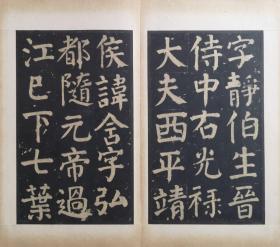 字靜伯生晉
侍中右光祿
大夫西平靖
侯諱含字弘
都隨元帝過
江已下七葉